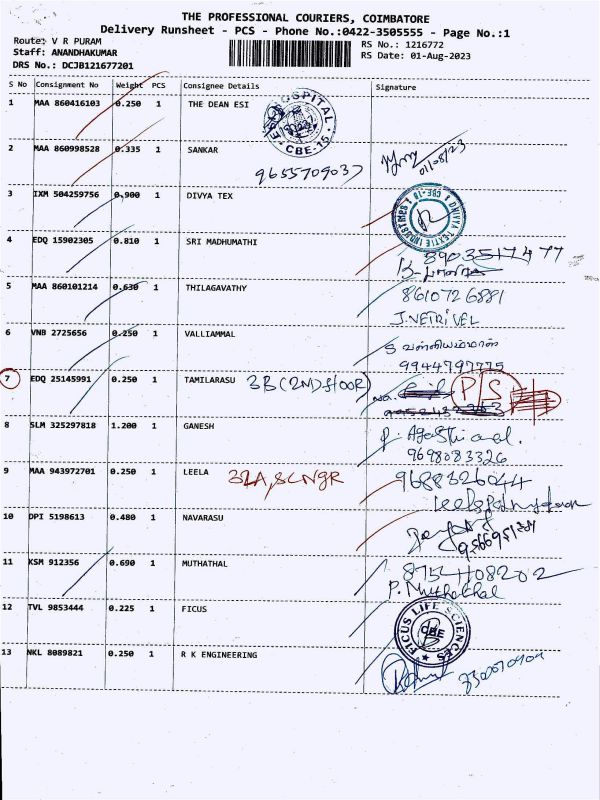 THE PROFESSIONAL COURIERS, COIMBATORE
Delivery Runsheet - PCS - Phone No.:0422-3505555 - Page No.:1
Route: V R PURAM
RS No.: 1216772
Staff: ANANDHAKUMAR
RS Date: 01-Aug-2023
DRS No.: DCJB121677201
S No Consignment No Weight PCS Consignee Details Signature
1 MAA 860416103 0.250 1 THE DEAN ESI
HOSPITAL CBE-15
2 MAA 860998528 0.335 1 SANKAR
01/08/23
9655709037
3 IXM 504259756 0.900 1 DIVYA TEX
DHIVYA TEXTILE INDUSTRIES CBE-15
4 EDQ 15902305 0.810 1 SRI MADHUMATHI
8903517477
5 MAA 860101214 0.630 1 THILAGAVATHY
8610726881
J.VETRIVEL
6 VNB 2725656 0.250 1 VALLIAMMAL
S வள்ளியம்மாள்
9944797775
7 EDQ 25145991 0.250 1 TAMILARASU 3B (2ND floOR)
P/S
8 SLM 325297818 1.200 1 GANESH
9698083326
9 MAA 943972701 0.250 1 LEELA 32A, SCNGR
9688326044
10 DPI 5198613 0.480 1 NAVARASU
11 KSM 912356 0.690 1 MUTHATHAL
8754408202
P. Muthathal
12 TVL 9853444 0.225 1 FICUS
FICUS LIFE SCIENCES CBE
13 NKL 8089821 0.250 1 R K ENGINEERING